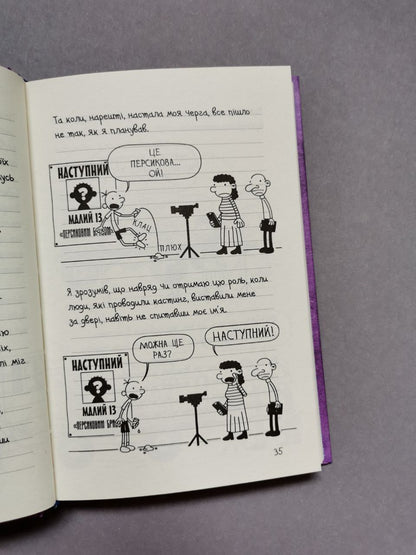 їх
усь
ю
ік,
лі міг
ви
Та коли, нарешті, настала моя черга, все пішло
не так, як я планував.
ЦЕ
ПЕРСИКОВА...
ОЙ!
НАСТУПНИЙ
МАЛИЙ ІЗ
«ПЕРСИКОВИМ
КЛАЦ
ПЛЮХ
Я зрозумів, що навряд чи отримаю цю роль, коли
люди, які проводили кастинг, виставили мене
за двері, навіть не спитавши моє ім'я.
МОЖНА ЩЕ
РАЗ?
НАСТУПНИЙ!
НАСТУПНИЙ
МАЛИЙ ІЗ
«ПЕРСИКОВИМ
35